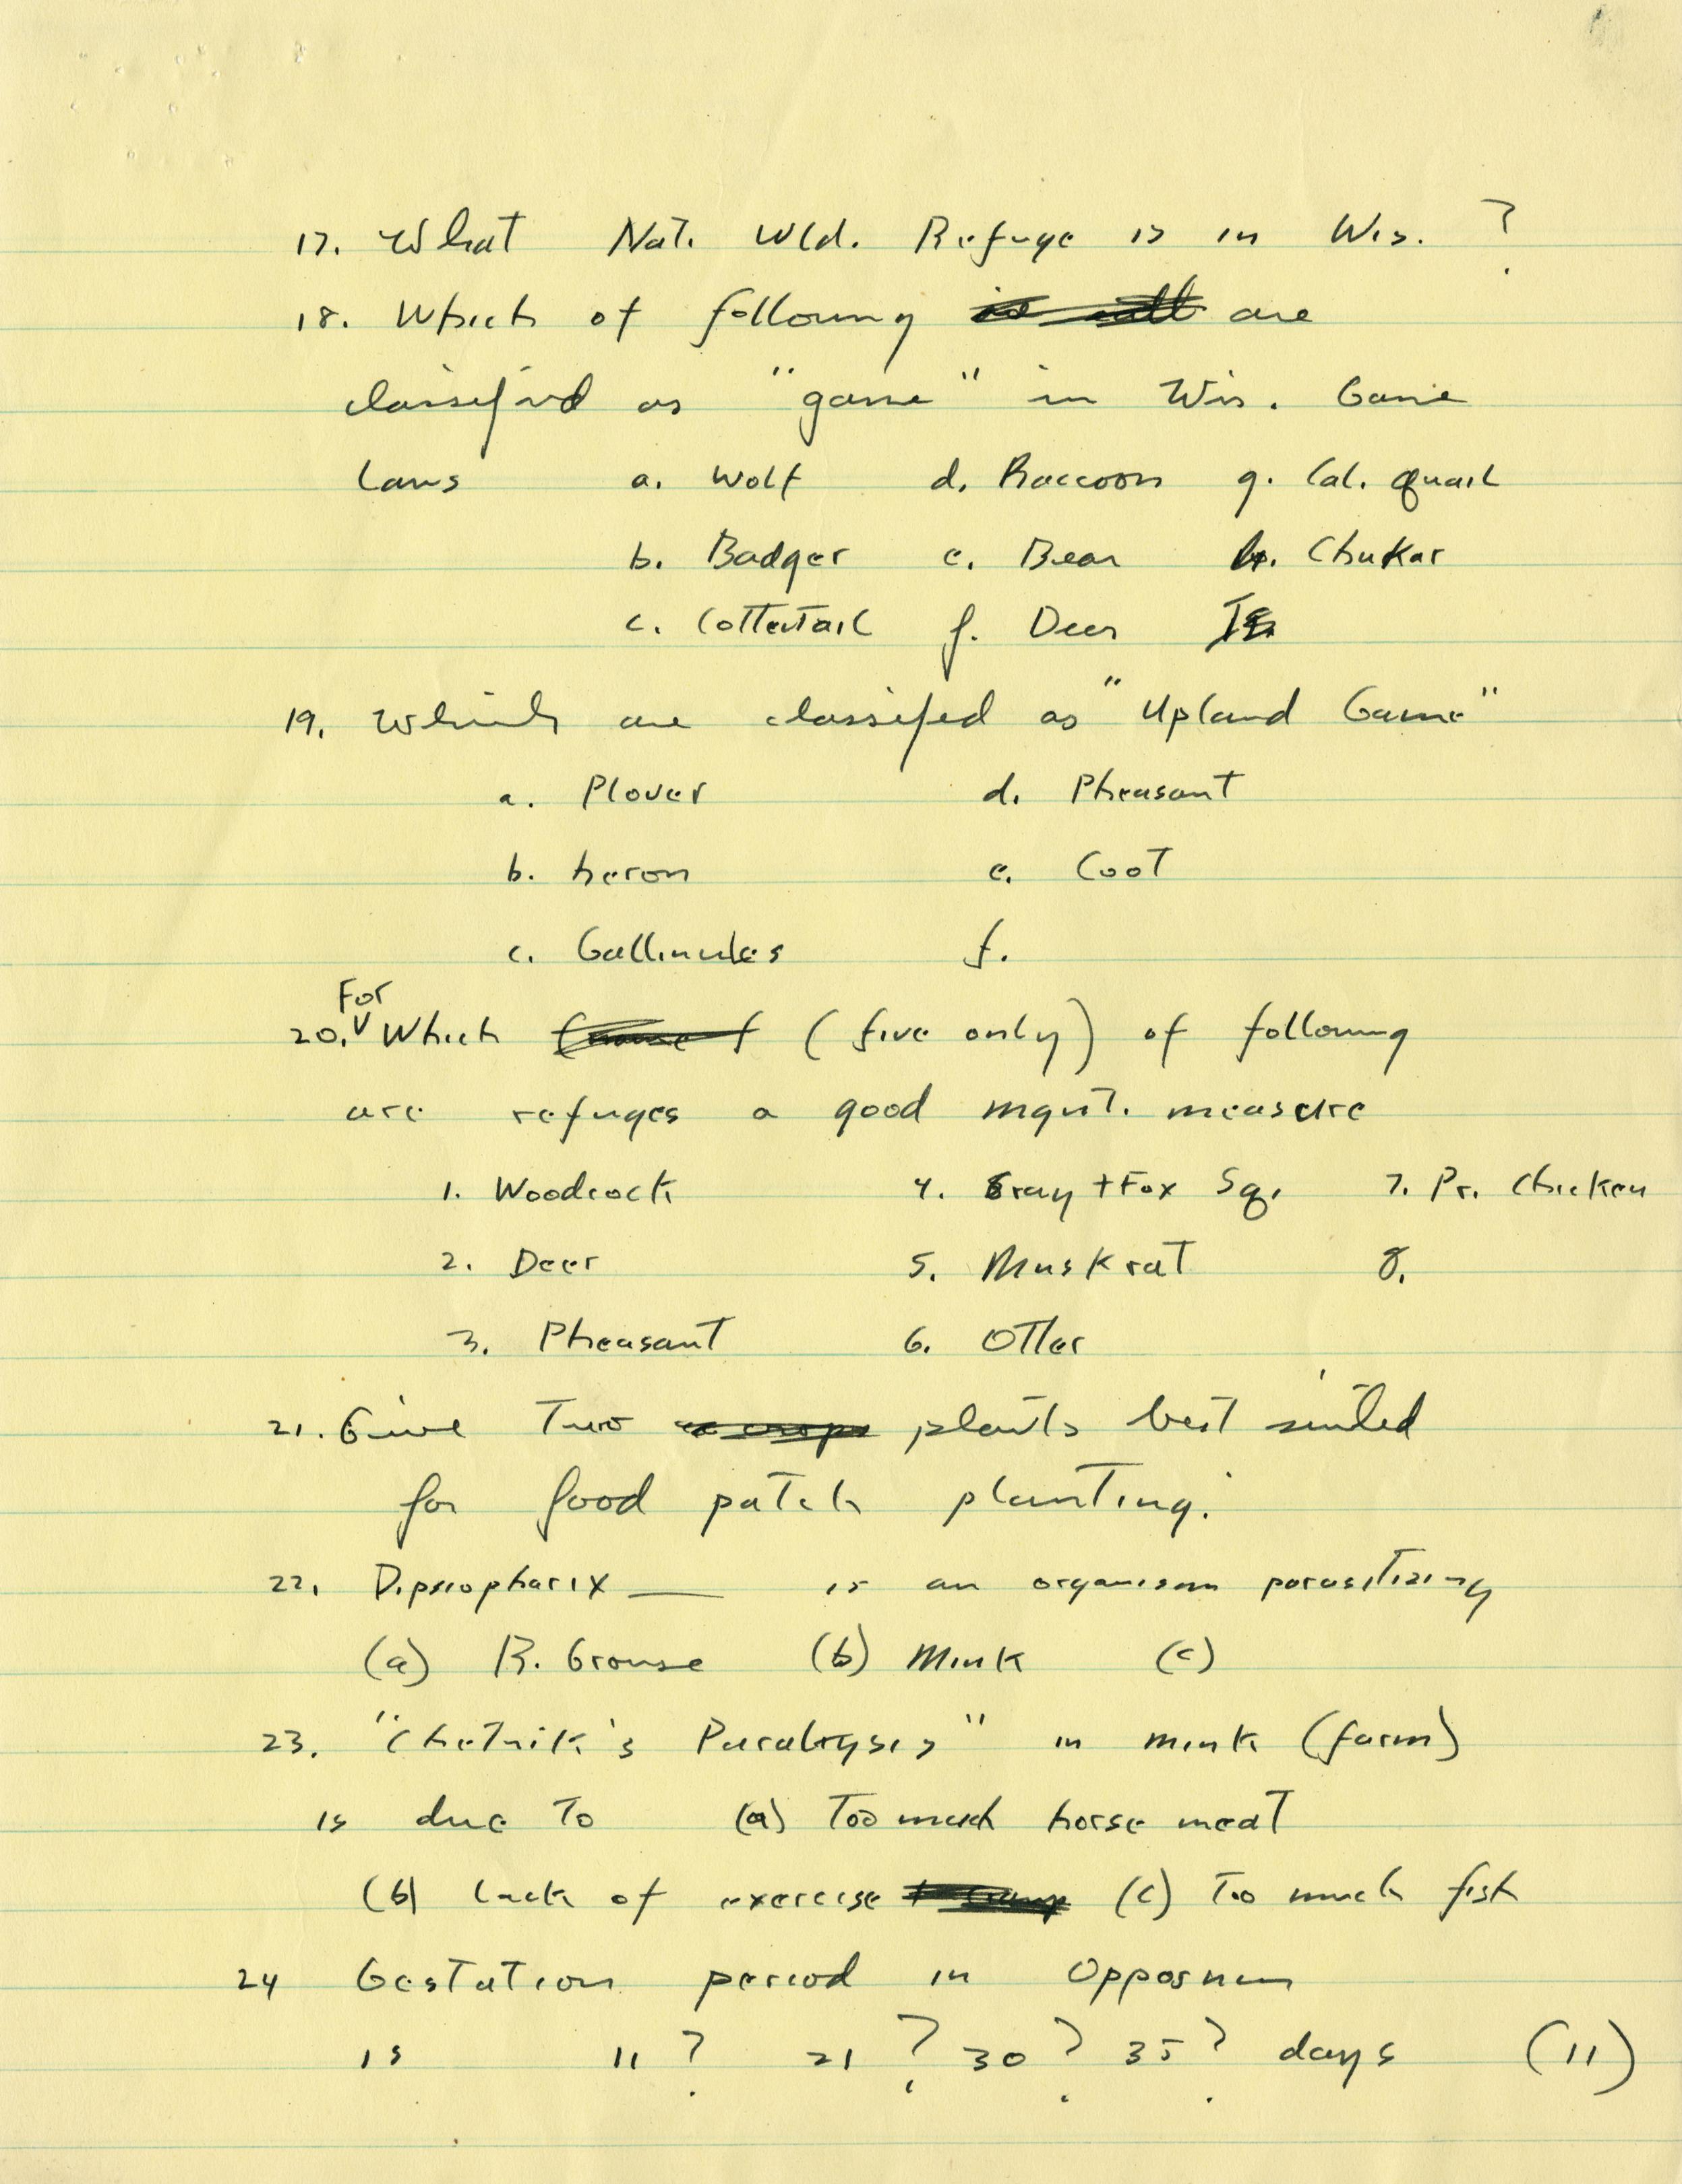 17. What Nat. Wld. Refuge is in Wis. ?
18. Which of following are
classified as "game" in Wis. Game
Laws a. Wolf d. Raccoon g. Cal. quail
b. Badger e. Bear h. Chukar
c. Cottontail f. Deer
19. Which are classified as "Upland Game"
a. Plover d. Pheasant
b. heron e. Coot
c. Gallinules f.
For
20. Which (five only) of following
are refuges a good mgmt. measure
1. Woodcock 4. Gray + Fox Sq. 7. Pr. Chicken
2. Deer 5. Muskrat 8.
3. Pheasant 6. Otter
21. Give Two plants best suited
for food patch planting.
22. is an organism parasitizing
(a) R. Grouse (b) Mink (c)
23. "Chetnik's Paralysis" in mink (farm)
is due to (a) Too much horse meat
(b) lack of exercise (c) Too much fish
24 Gestation period in Opposum
is 11 ? 21 ? 30 ? 35 ? days (11)